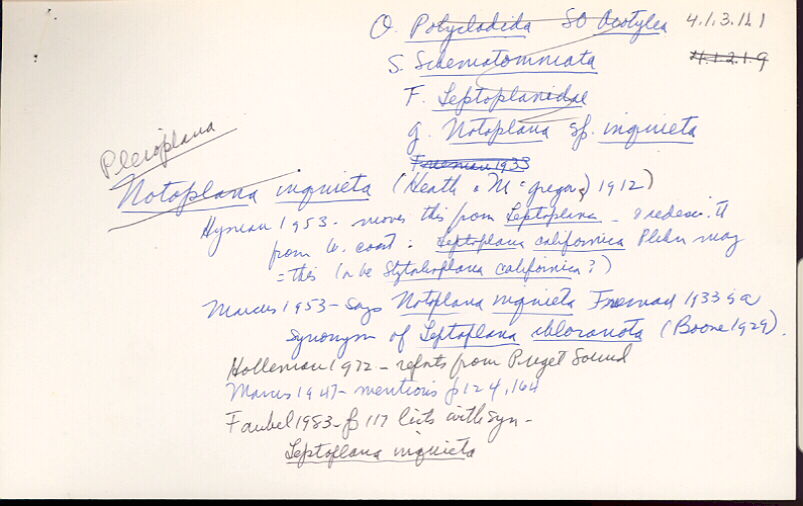 O. Polycladida SO Acotylea 4.1.3.1.1
4.1.2.1.9
S. Schematommata
F. Leptoplanidae
g. Notoplana sp. inquieta
Freeman 1933
Pleioplana
Notoplana inquieta (Heath & McGregor, 1912)
Hyman 1953 - moves this from Leptoplana - & redescr. it
from W. coast: Leptoplana californica Plehn may
= this (or be Stylochoplana californica?)
Marcus 1953 - says Notoplana inquieta Freeman 1933 is a
synonym of Leptoplana chloranota (Boone 1929).
Holleman 1972 - reports from Puget Sound
Marcus 1947 - mentions p 124, 164
Faubel 1983 - p 117 lists with syn -
Leptoplana inquieta